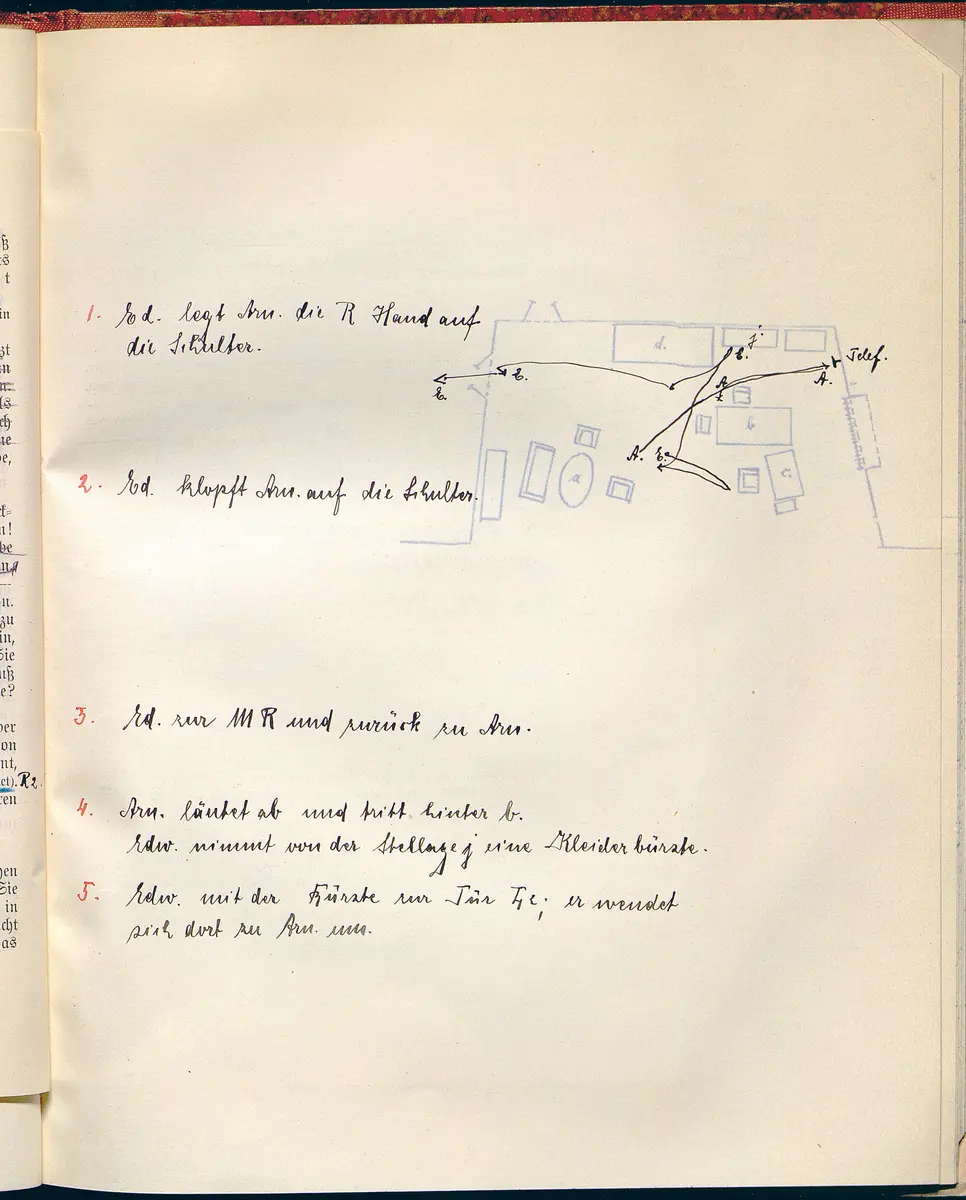 ß
t
in
zt
ls
ch
ne
be,
n!
be
n.
zu
in,
Sie
uß
e?
er
on
nt,
et). R2.
ren
hen
Sie
in
cht
as
1. Ed. legt Arn. die R Hand auf
die Schulter.
d.
j.
E.
Telef.
E.
E.
A.
A.
A. E.
b
a
c
2. Ed. klopft Arn. auf die Schulter.
3. Ed. zur MR und zurück zu Arn.
4. Arn. läutet ab und tritt hinter b.
Edw. nimmt von der Stellage j eine Kleiderbürste.
5. Edw. mit der Bürste zur Tür
er wendet
sich dort zu Arn. um.